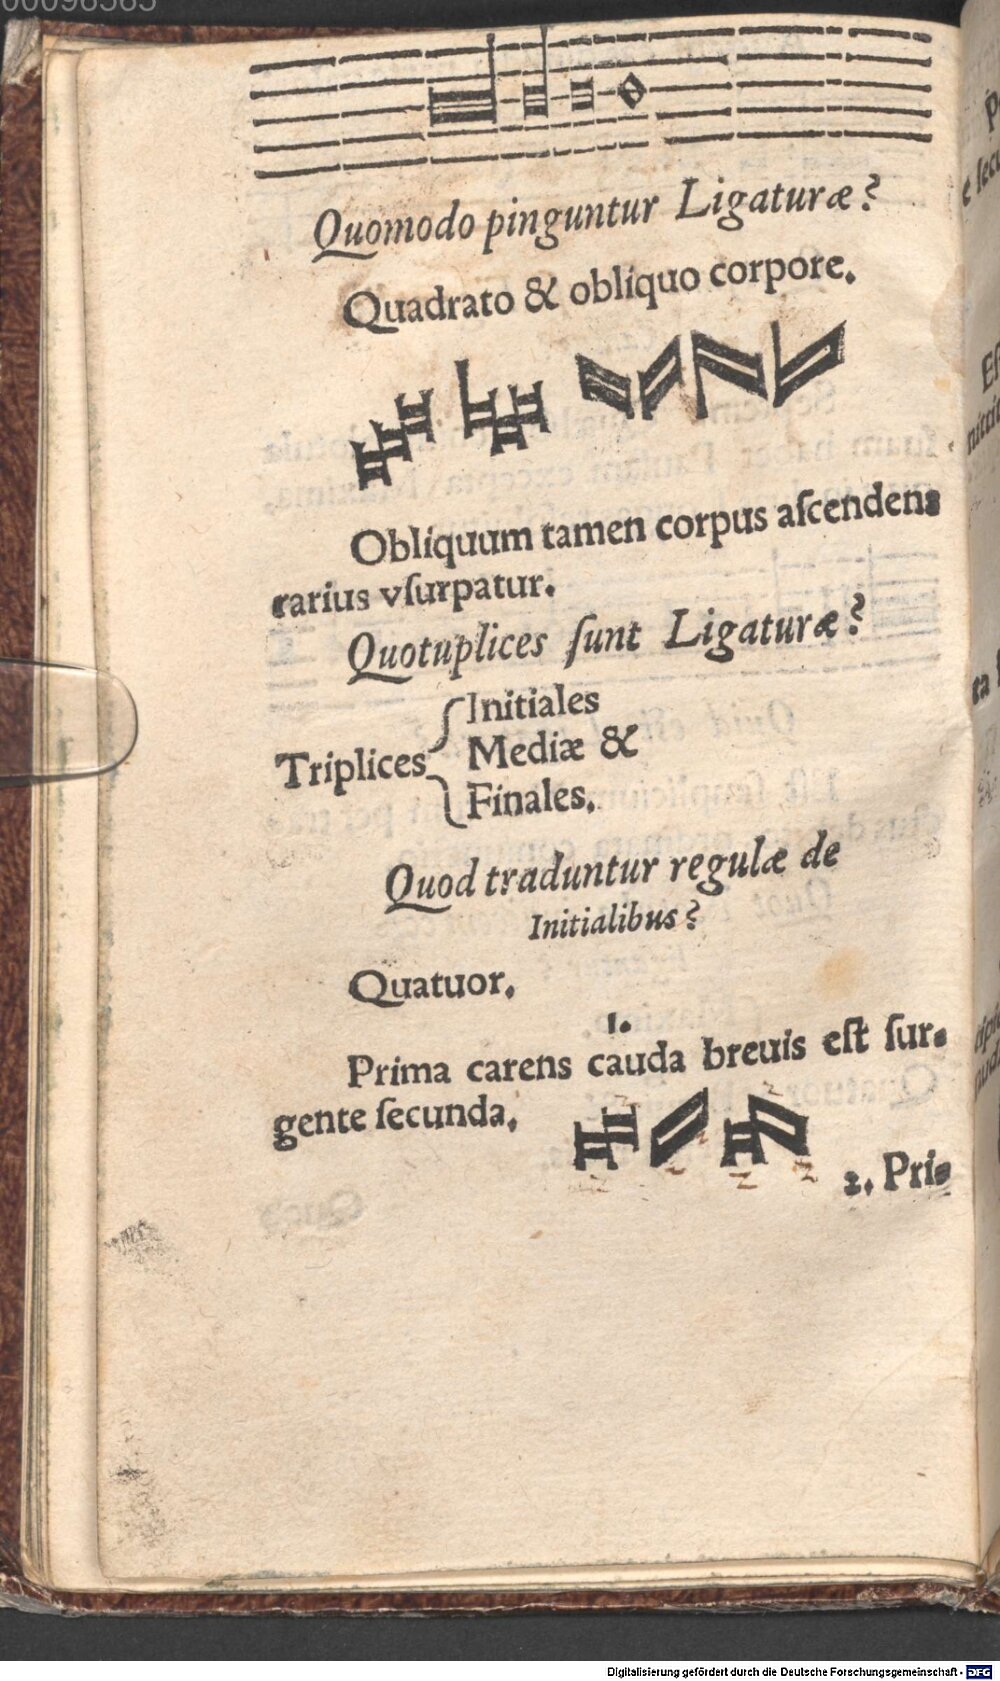 00098585
Quomodo pinguntur Ligaturæ?
Quadrato & obliquo corpore.
Obliquum tamen corpus aſcendens
rarius vſurpatur.
Quotuplices ſunt Ligaturæ?
Initiales
Triplices Mediæ &
Finales.
Quod traduntur regulæ de
Initialibus?
Quatuor.
1.
Prima carens cauda breuis eſt ſur-
gente ſecunda.
2. Pri-
Digitalisierung gefördert durch die Deutsche Forschungsgemeinschaft - DFG